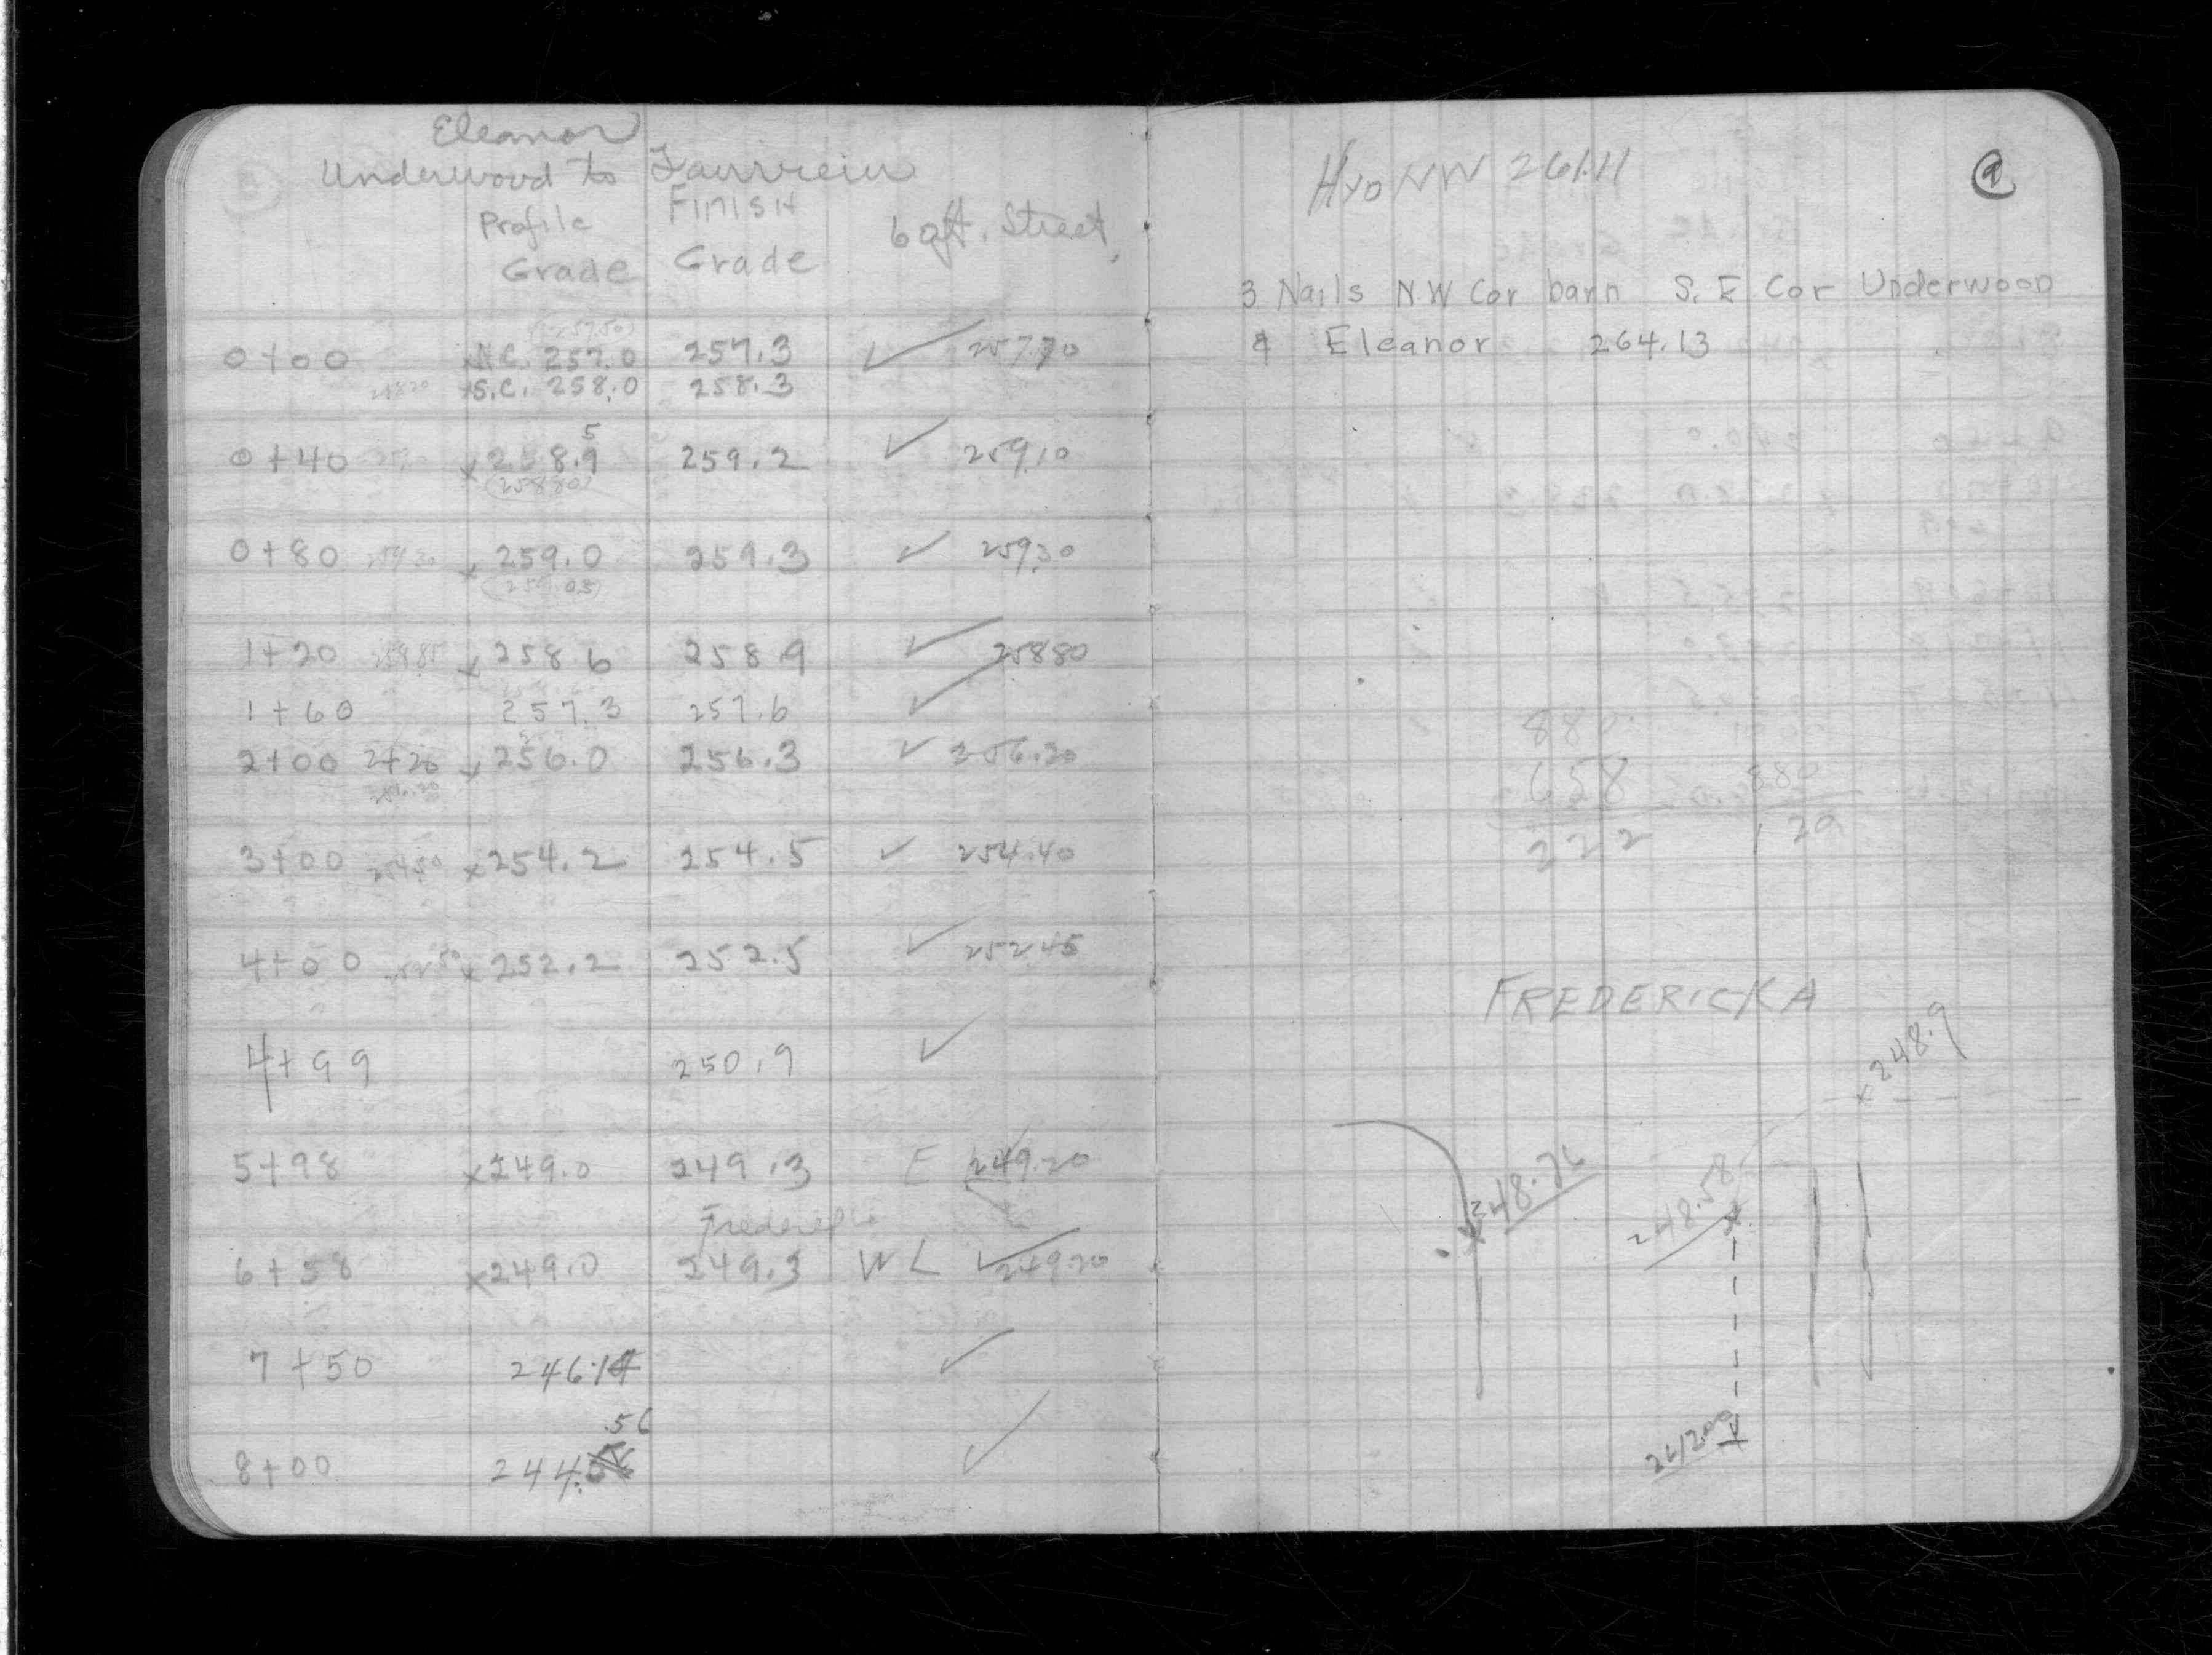 Eleanor
Underwood to Fairview
Profile Grade FINISH Grade 60ft. Street
(257.50)
0+00 N.C. 257.0 257.3 ✓ 257.70
258.20 S.C. 258.0 258.3
5
0+40 x 258.9 259.2 ✓ 259.10
(258.80)
0+80 259.30 x 259.0 259.3 ✓ 259.30
(259.05)
1+20 258.85 x 258.6 258.9 ✓ 258.80
1+60 257.3 257.6 ✓
2+00 2+20 x 256.0 256.3 ✓ 256.20
256.20
3+00 254.50 x 254.2 254.5 ✓ 254.40
4+00 252.50 x 252.2 252.5 ✓ 252.45
4+99 250.9 ✓
5+98 x 249.0 249.3 E 249.20
6+58 x 249.0 249.3 W L ✓ 249.20
7+50 246.14 ✓
.56
8+00 244. ✓
Hyd NW 261.11
9
3 Nails N.W Cor barn S.E Cor Underwood
& Eleanor 264.13
880
658 880
222 129
FREDERICKA
x 248.9
248.76
248.58